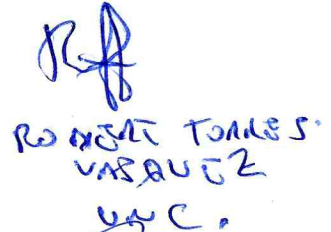 ROBERT TORRES
VASQUEZ
UNC.